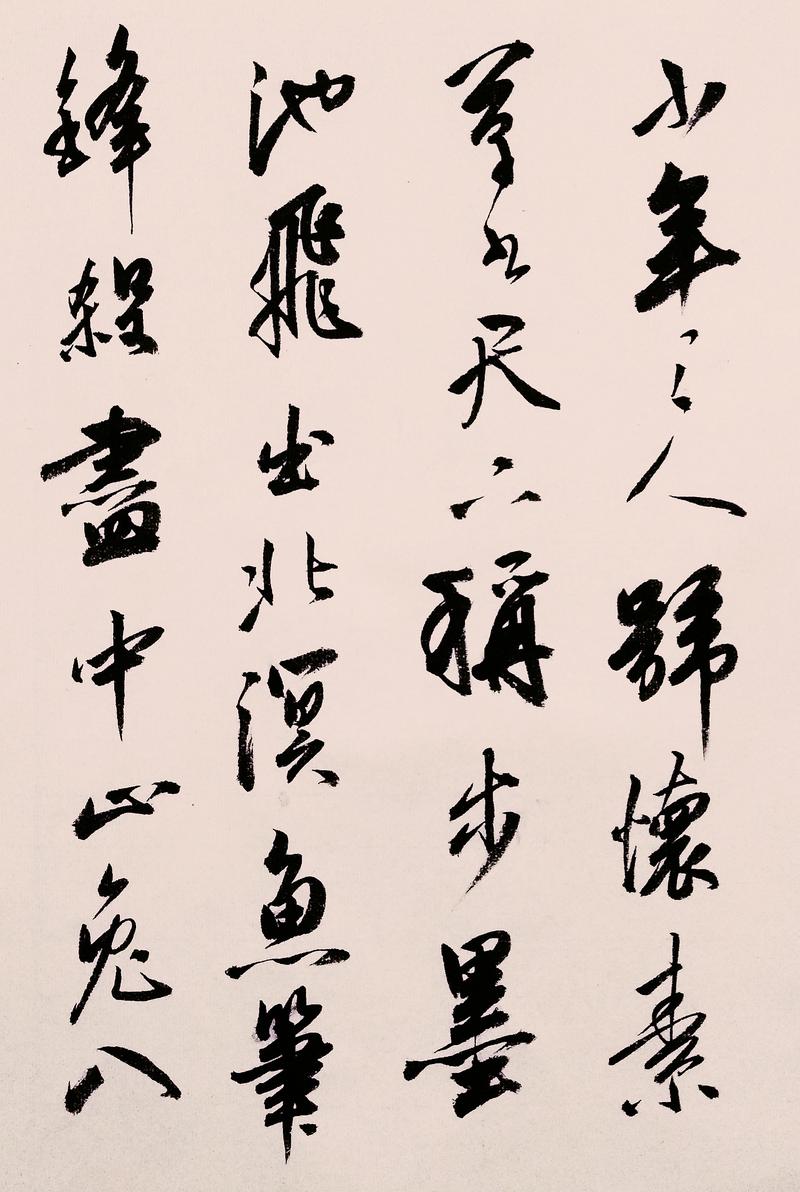 少年上人號懷素
草書天下稱步墨
池飛出北溟魚筆
鋒殺盡中山兔八